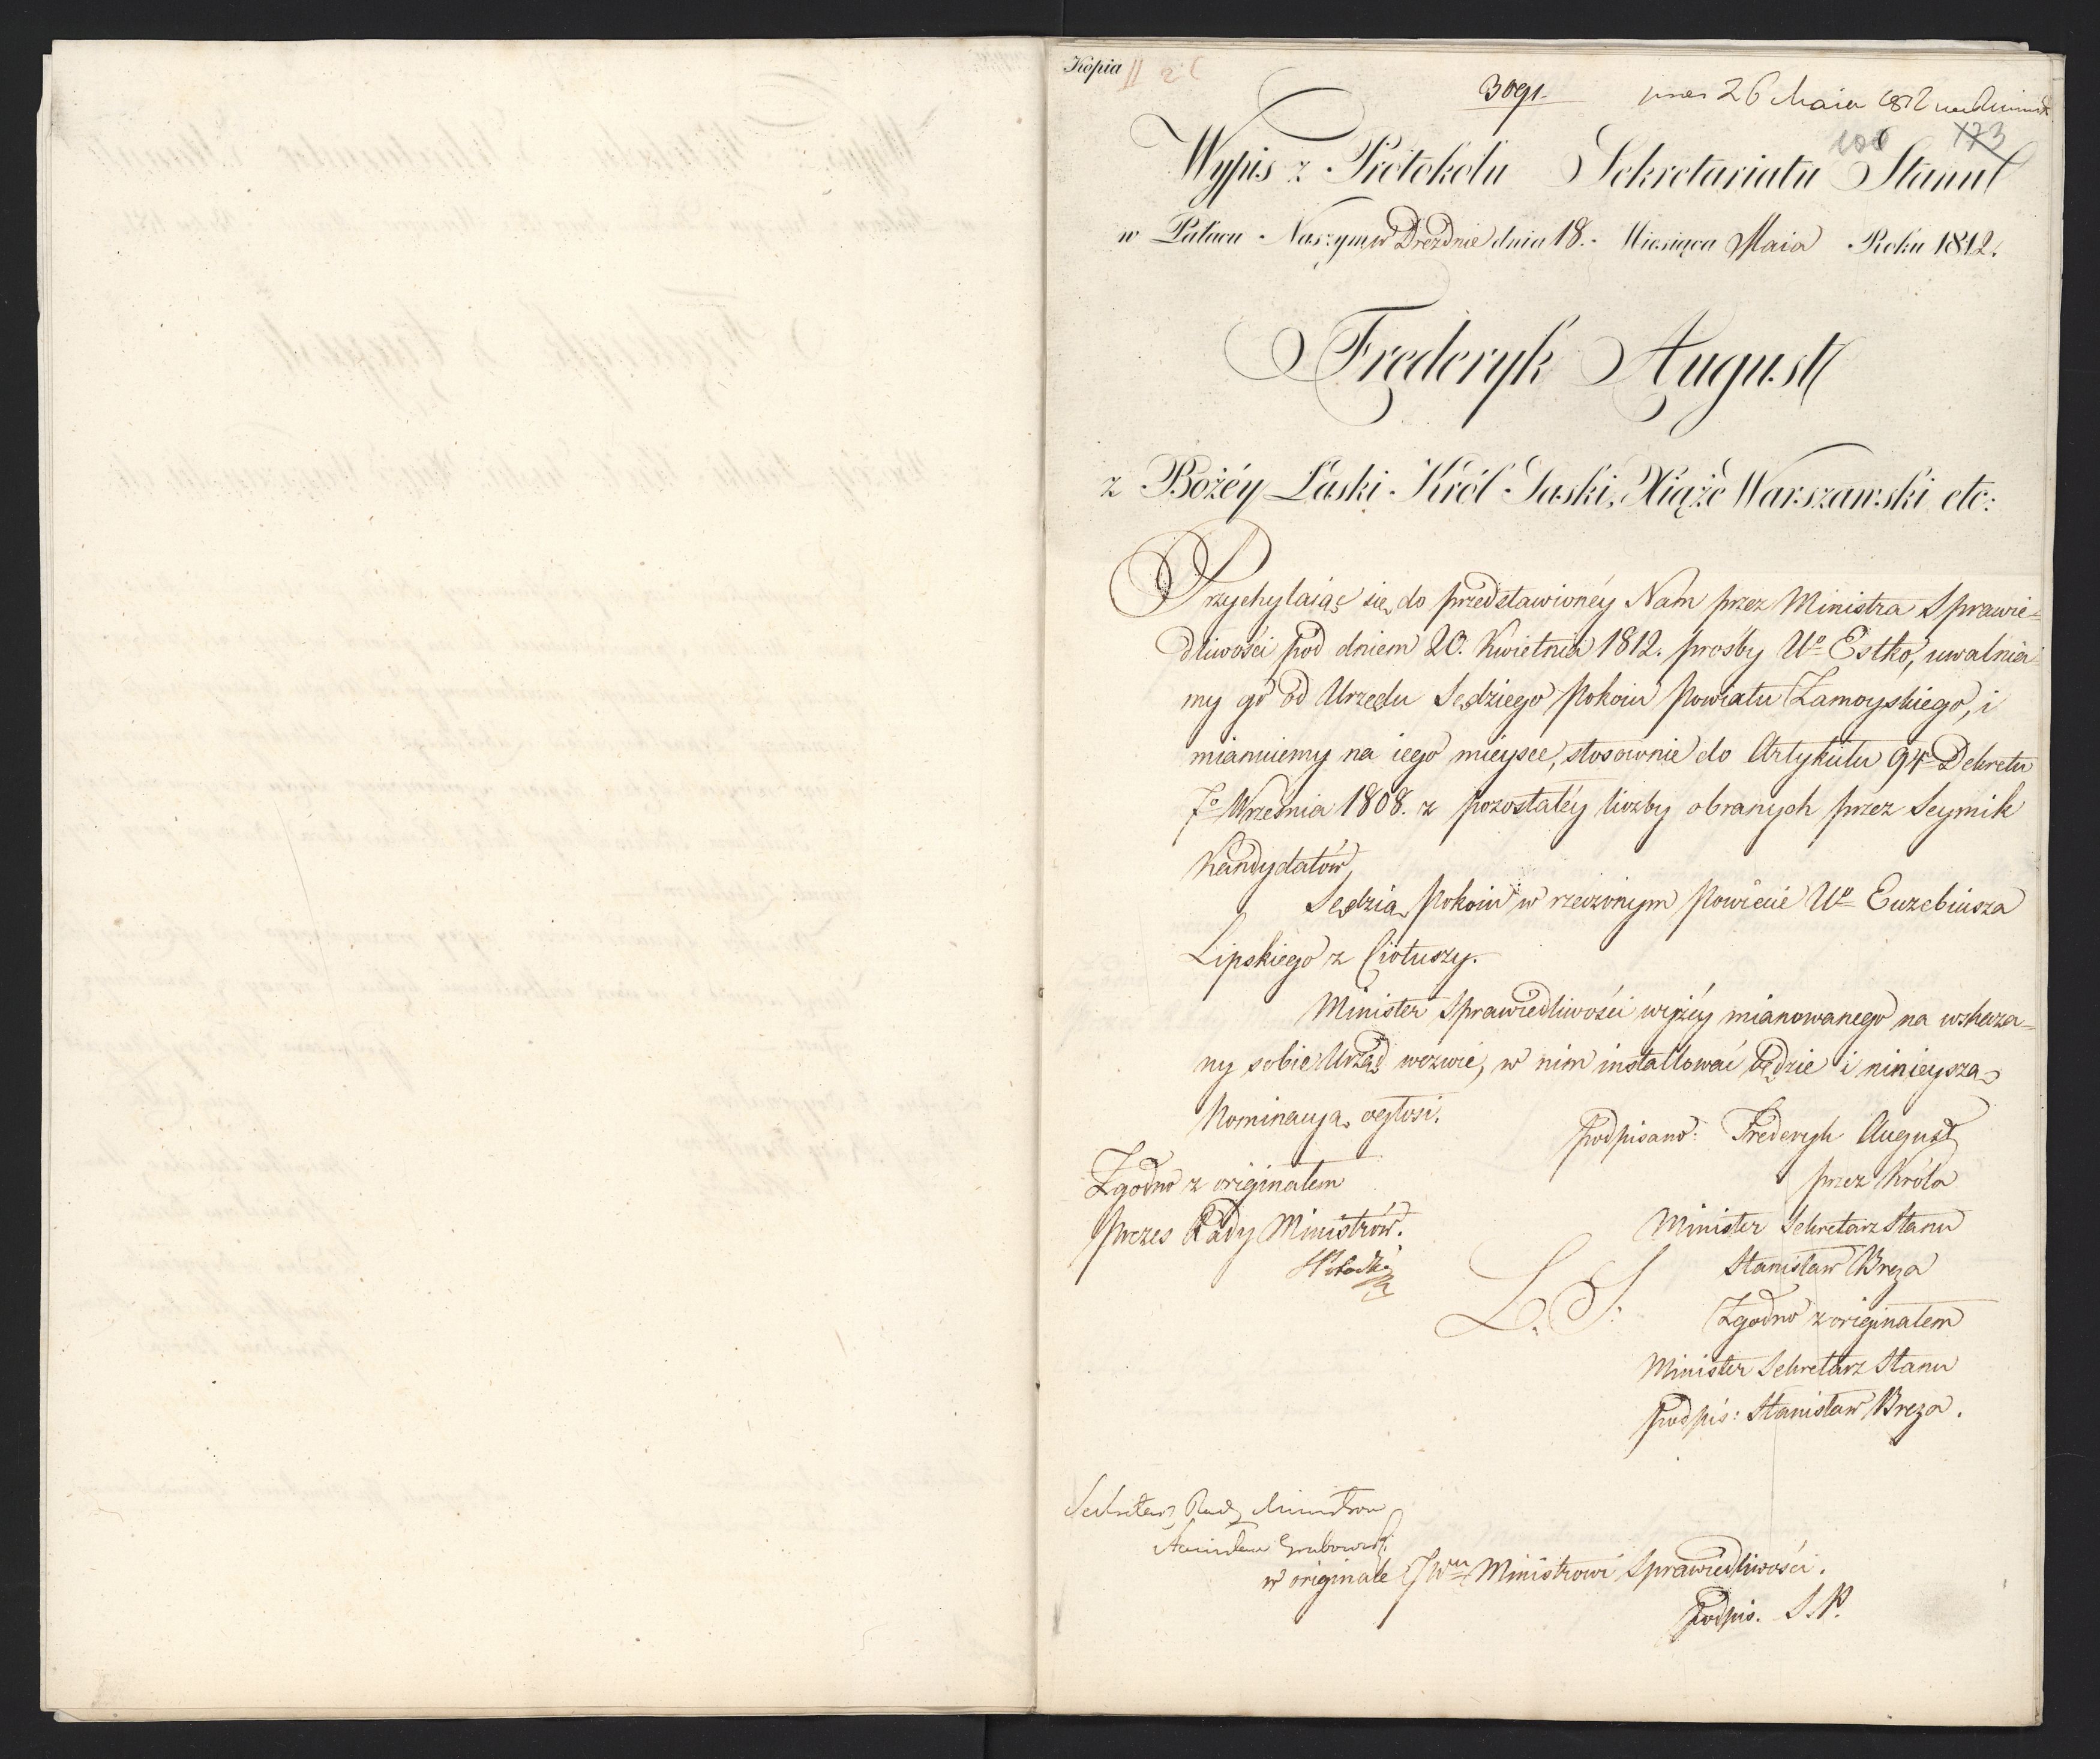 Kopia II
3091.
26 Maia 1812
106 173
Wypis z Protokołu Sekretariatu Stanu
w Pałacu Naszym w Dreznie dnia 18. Miesiąca Maia Roku 1812.
Frederyk August
z Bożéy Łaski Król Saski, Xiąże Warszawski etc:
Przychylaiąc się do przedstawionéy Nam przez Ministra Sprawie=
dliwości pod dniem 20. Kwietnia 1812. prosby Uo Estko, uwalnia=
my go od Urzędu Sędziego Pokoiu Powiatu Zamoyskiego, i
mianuiemy na iego mieysce, stosownie do Artykułu 94 Dekretu
7o Września 1808. z pozostałéy liczby obranych przez Seymik
Kandydatów,
Sędzią Pokoiu w rzeczonym Powiecie Uo Euzebiusza
Lipskiego z Ciotuszy.
Minister Sprawiedliwości wyżéy mianowanego na wskaza=
ny sobie Urząd wezwie, w nim installować będzie i ninieyszą
Nominacyą ogłosi.
Podpisano: Frederyk August
przez Króla
Minister Sekretarz Stanu
Stanisław Breza
Zgodno z originałem
Prezes Rady Ministrów.
L. S.
Zgodno z originałem
Minister Sekretarz Stanu
podpis: Stanisław Breza.
Sekretarz Rady Ministrow
Stanisław Grabowski
w originale JWu Ministrowi Sprawiedliwości.
podpis. S. P.